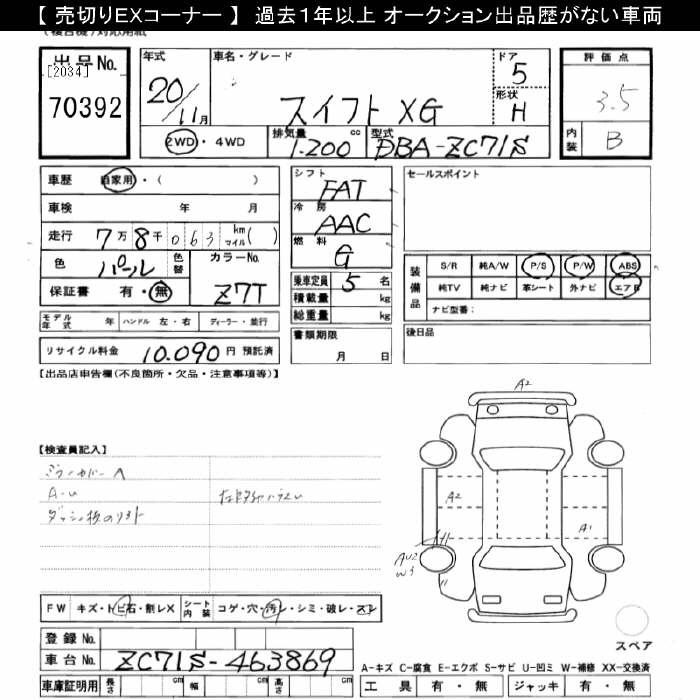 【 売切りEXコーナー 】 過去1年以上 オークション出品歴がない車両
出品No.
[2034]
70392
年式
20/11月
車名・グレード
スイフト XG
ドア
5
形状
H
評価点
3.5
内装
B
2WD・4WD
排気量
1.200 cc
型式
DBA-ZC71S
車歴 自家用・( )
車検 年 月
走行 7万8千063 km マイル( )
色 パール 色替
カラーNo.
Z7T
保証書 有・無
モデル年式 年 ハンドル 左・右 ディーラー・並行
リサイクル料金 10.090円 預託済
シフト
FAT
冷房
AAC
燃料
G
乗車定員 5 名
積載量 kg
総重量 kg
書類期限
月 日
セールスポイント
装備品
S/R 純A/W P/S P/W ABS
純TV 純ナビ 革シート 外ナビ エアB
ナビ型番:
後日品
【出品店申告欄(不良箇所・欠品・注意事項等)】
【検査員記入】
ミラーカバーA
A-U
A2
A2
A1
AU2
W3
FW キズ・トビ石・割レX シート内装 コゲ・穴・汚レ・シミ・破レ・スレ
登録No.
車台No. ZC71S-463869
車庫証明用 長さ cm 幅 cm 高さ cm
スペア
A-キズ C-腐食 E-エクボ S-サビ U-凹ミ W-補修 XX-交換済
工具 有・無 ジャッキ 有・無